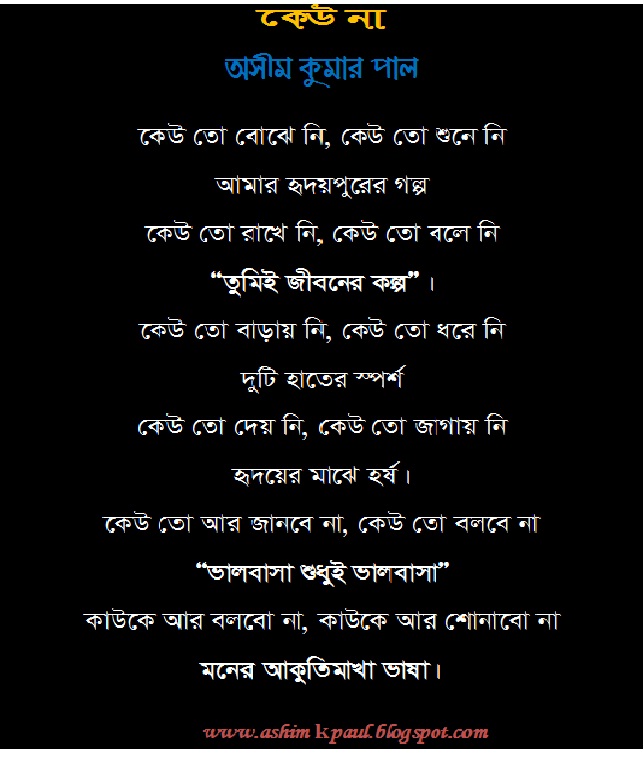 কেউ না
অসীম কুমার পাল
কেউ তো বোঝে নি, কেউ তো শুনে নি
আমার হৃদয়পুরের গল্প
কেউ তো রাখে নি, কেউ তো বলে নি
“তুমিই জীবনের কল্প” ।
কেউ তো বাড়ায় নি, কেউ তো ধরে নি
দুটি হাতের স্পর্শ
কেউ তো দেয় নি, কেউ তো জাগায় নি
হৃদয়ের মাঝে হর্ষ।
কেউ তো আর জানবে না, কেউ তো বলবে না
“ভালবাসা শুধুই ভালবাসা”
কাউকে আর বলবো না, কাউকে আর শোনাবো না
মনের আকুতিমাখা ভাষা।
www.ashim kpaul.blogspot.com